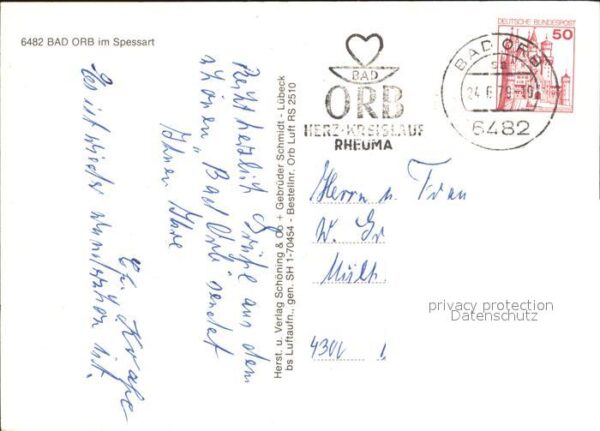 6482 BAD ORB im Spessart
Recht herzlich Grüße aus dem
schönen „Bad Orb" sendet
Ihnen Ihre
Es ist wieder wunderschön ist.
Herst. u. Verlag Schöning & Co + Gebrüder Schmidt - Lübeck
bs Luftaufn., gen. SH 1-70454 - Bestellnr. Orb Luft RS 2510
BAD
ORB
HERZ-KREISLAUF
RHEUMA
BAD ORB
24.6.79-19
6482
DEUTSCHE BUNDESPOST
50
Herrn u. Frau
W. Gr
Mülh.
4300 1
privacy protection
Datenschutz